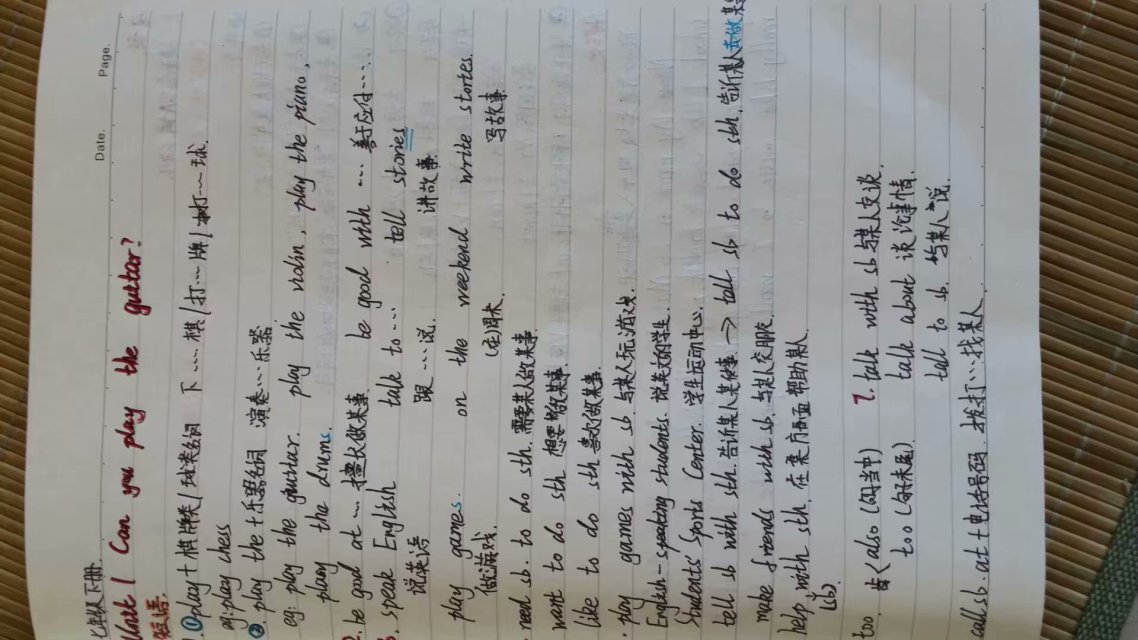 Date.    Page.
七年级下册
Unit 1 Can you play the guitar?
短语.
1. ①play+棋牌类/球类名词 下……棋/打…牌/打……球.
eg:play chess
② play the+乐器名词 演奏……乐器
eg: play the guitar. play the violin, play the piano,
play the drums.
2. be good at … 擅长做某事 be good with … 善于应付…
3. speak English talk to … tell stories
说英语 跟…说. 讲故事
play games. on the weekend write stories.
做游戏 (在)周末. 写故事
need sb. to do sth. 需要某人做某事
want to do sth 想要做某事
like to do sth 喜欢做某事.
play games with sb 与某人玩游戏.
English-speaking students. 说英文的学生.
Students' Sports Center. 学生运动中心.
tell sb with sth. 告诉某人某事 → tell sb to do sth. 告诉某人去做某
make friends with sb. 与某人交朋友.
help with sth. 在某方面帮助某人
(sb).
too 也< also (句当中) 7. talk with sb 与某人交谈.
too (句末尾) talk about 谈论事情.
talk to sb. 与某人说.
call sb. at+电话号码. 拨打…找某人